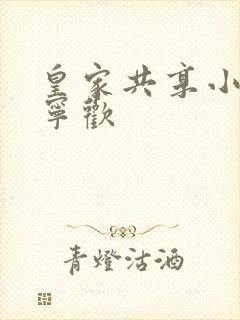 皇家共享小
寧歡
青燈沽酒